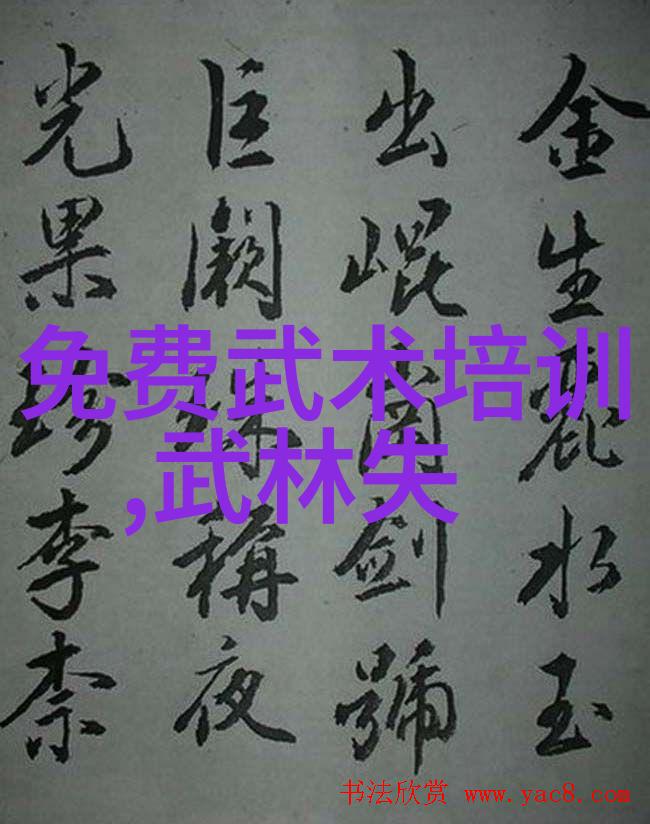 金生麗水玉
出崐崗劍號
巨闕珠稱夜
光果珍李柰
免费武术培训
,武林失
书法欣赏 www.yac8.com